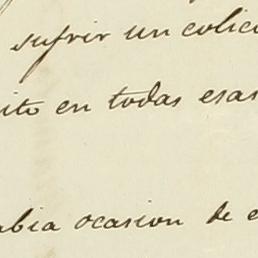 sufrir un colic
ito en todas esas
abia ocasion de e